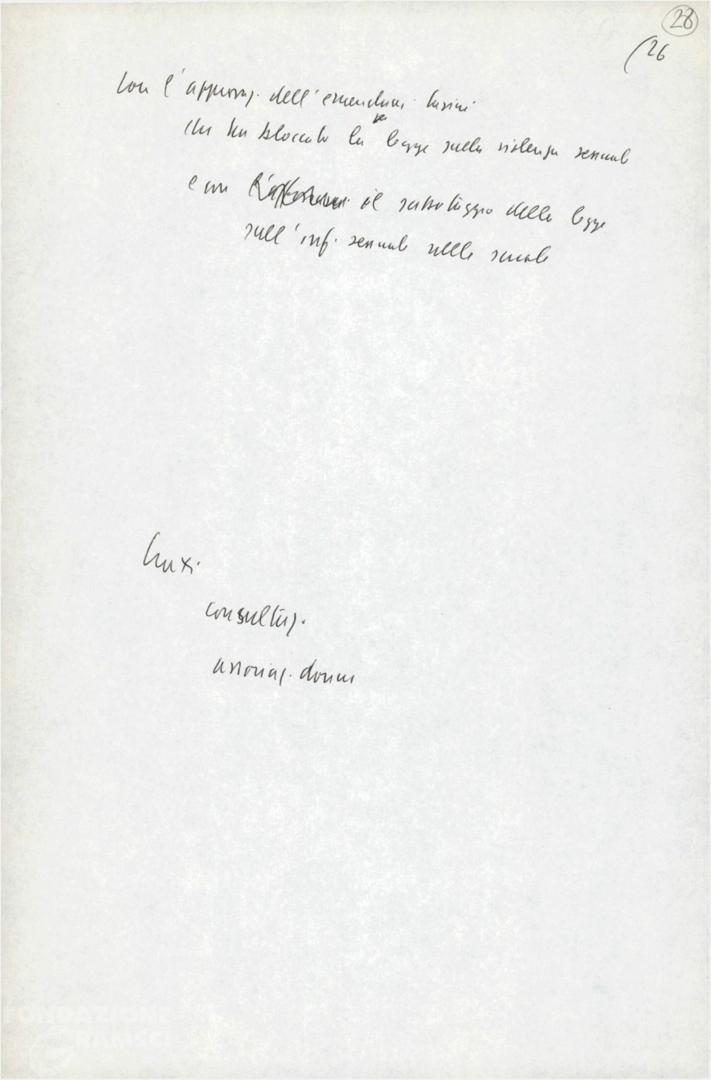 28
(26
con l'approvaz. dell'emendam. Casini
che ha bloccato la legge sulla violenza sessuale
e con il sabotaggio della legge
sull'inf. sessuale nelle scuole
consultaz.
associaz. donne
FONDAZIONE
GRAMSCI